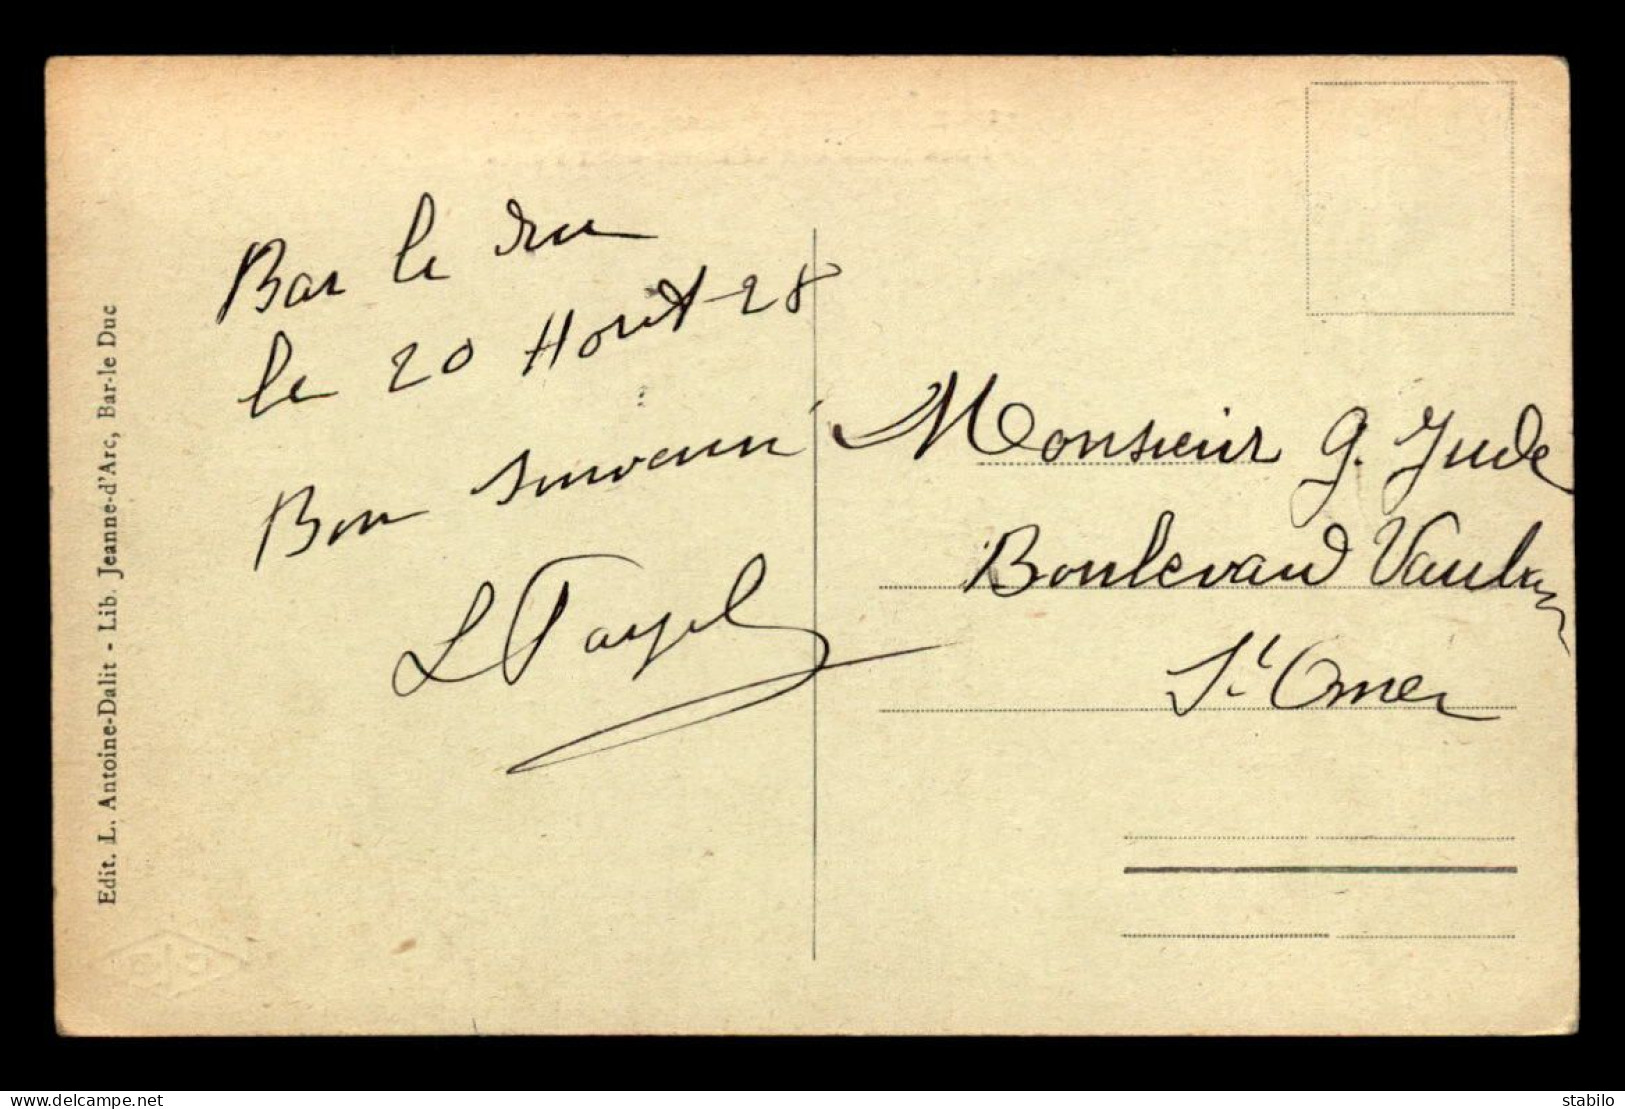 Bar le Duc
le 20 Aout 28
Bon souvenir
L
Monsieur G. Jude
Boulevard Vauban
St Omer
Edit. L. Antoine-Dalit - Lib. Jeanne-d'Arc, Bar-le Duc
delcampe.net
stabilo